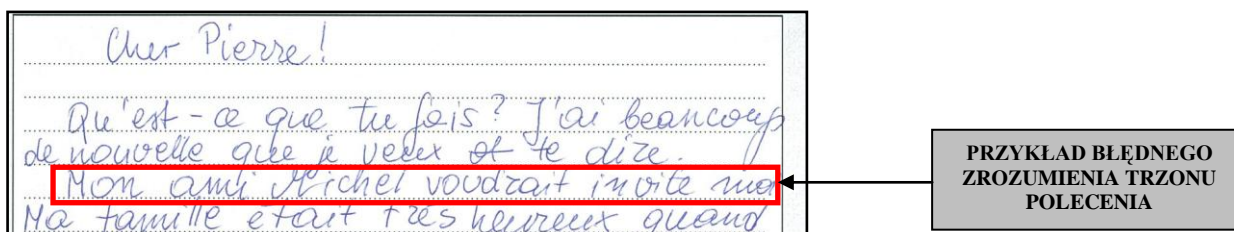 Cher Pierre!
Qu'est-ce que tu fais? J'ai beaucoup
de nouvelle que je veux te dire.
Mon ami Michel voudrait invite ma
Ma famille était très heureux quand
PRZYKŁAD BŁĘDNEGO
ZROZUMIENIA TRZONU
POLECENIA